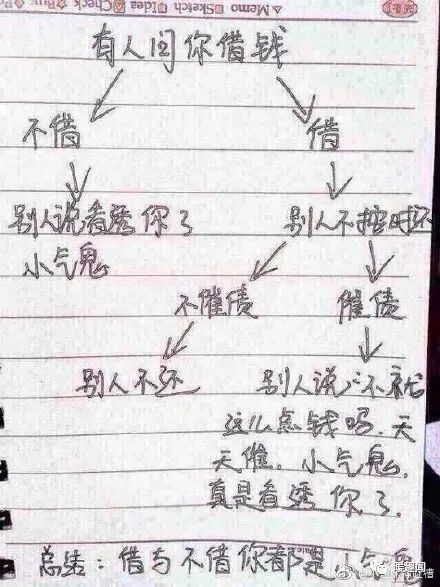 Memo Sketch Idea Check
有人问你借钱
不借 借
别人说看透你了 别人不按时还
小气鬼
不催债 催债
别人不还 别人说:"不就
这么点钱吗,天
天催,小气鬼,
真是看透你了.
总结:借与不借你都是小气鬼